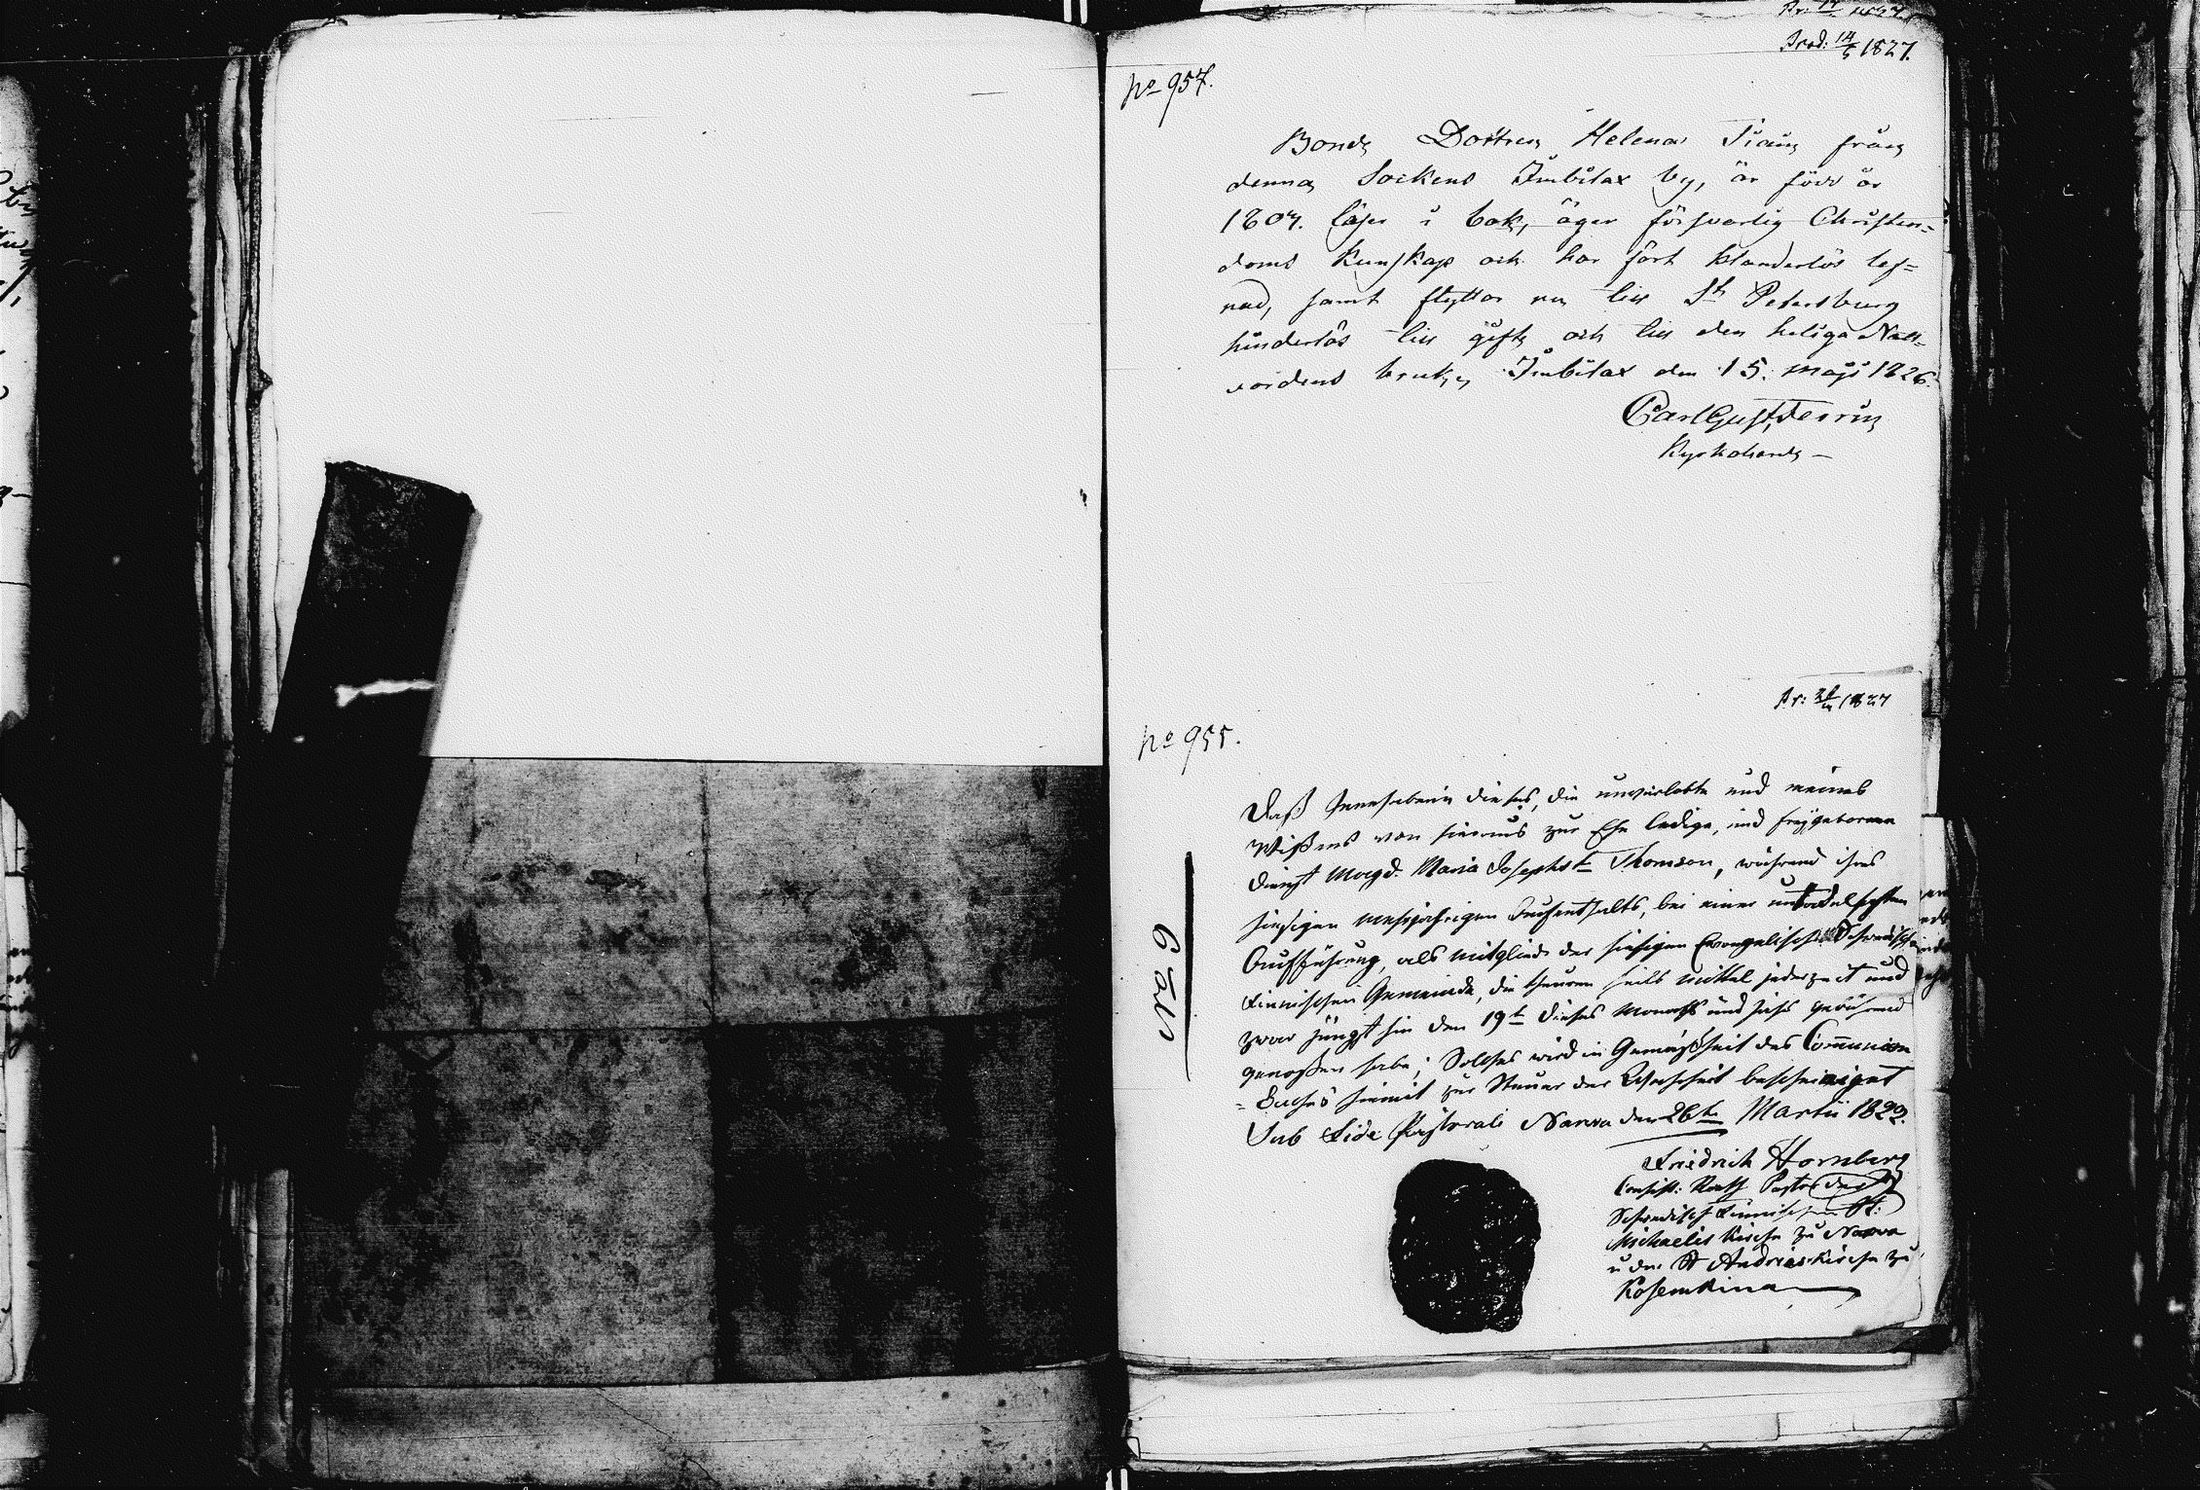 Prod: 14/5 1827.
No 957.
Bonde Dottren Helena Tiain från
denna Sockens Imbilax by, är född år
1807. läser i bok, äger försvarlig Christen=
doms kunskap och har fört klanderlös lef=
nad, samt flyttar nu till St Petersburg
hinderlös till gifte och till den heliga Natt-
vardens bruk, Imbilax den 15. Maji 1826.
Carl Gust.
Kyrkoherde
Pr: 1827
No 955.
Daß Innhaberin dieses, die unverlobte und meines
Wißens von hieraus zur Ehe ledige, und freygeborene
Dienst Magd. Maria Josephs Tr Thomson, während ihres
hiesigen mehrjährigen Aufenthalts, bei einer untadelhaften
Aufführung, als Mitglied der hiesigen Evangelischen Schwedisch
Finnischen Gemeinde, die theuren Heils Mittel jederzeit und
zwar jüngst hin den 19t dieses Monaths und Jahrs gebührend
genoßen habe; Solches wird in Gemäßheit des Communion
=Buches hiemit zur Steuer der Wahrheit bescheiniget
Sub Fide Pastorali Narva den 26t Martii 1822.
Friedrich Hornberg
Consist: Rath Pastor der
Schwedisch Finnischen St:
Michaelis Kirche zu Narva
u der St Andreas Kirche zu
Kosemkina